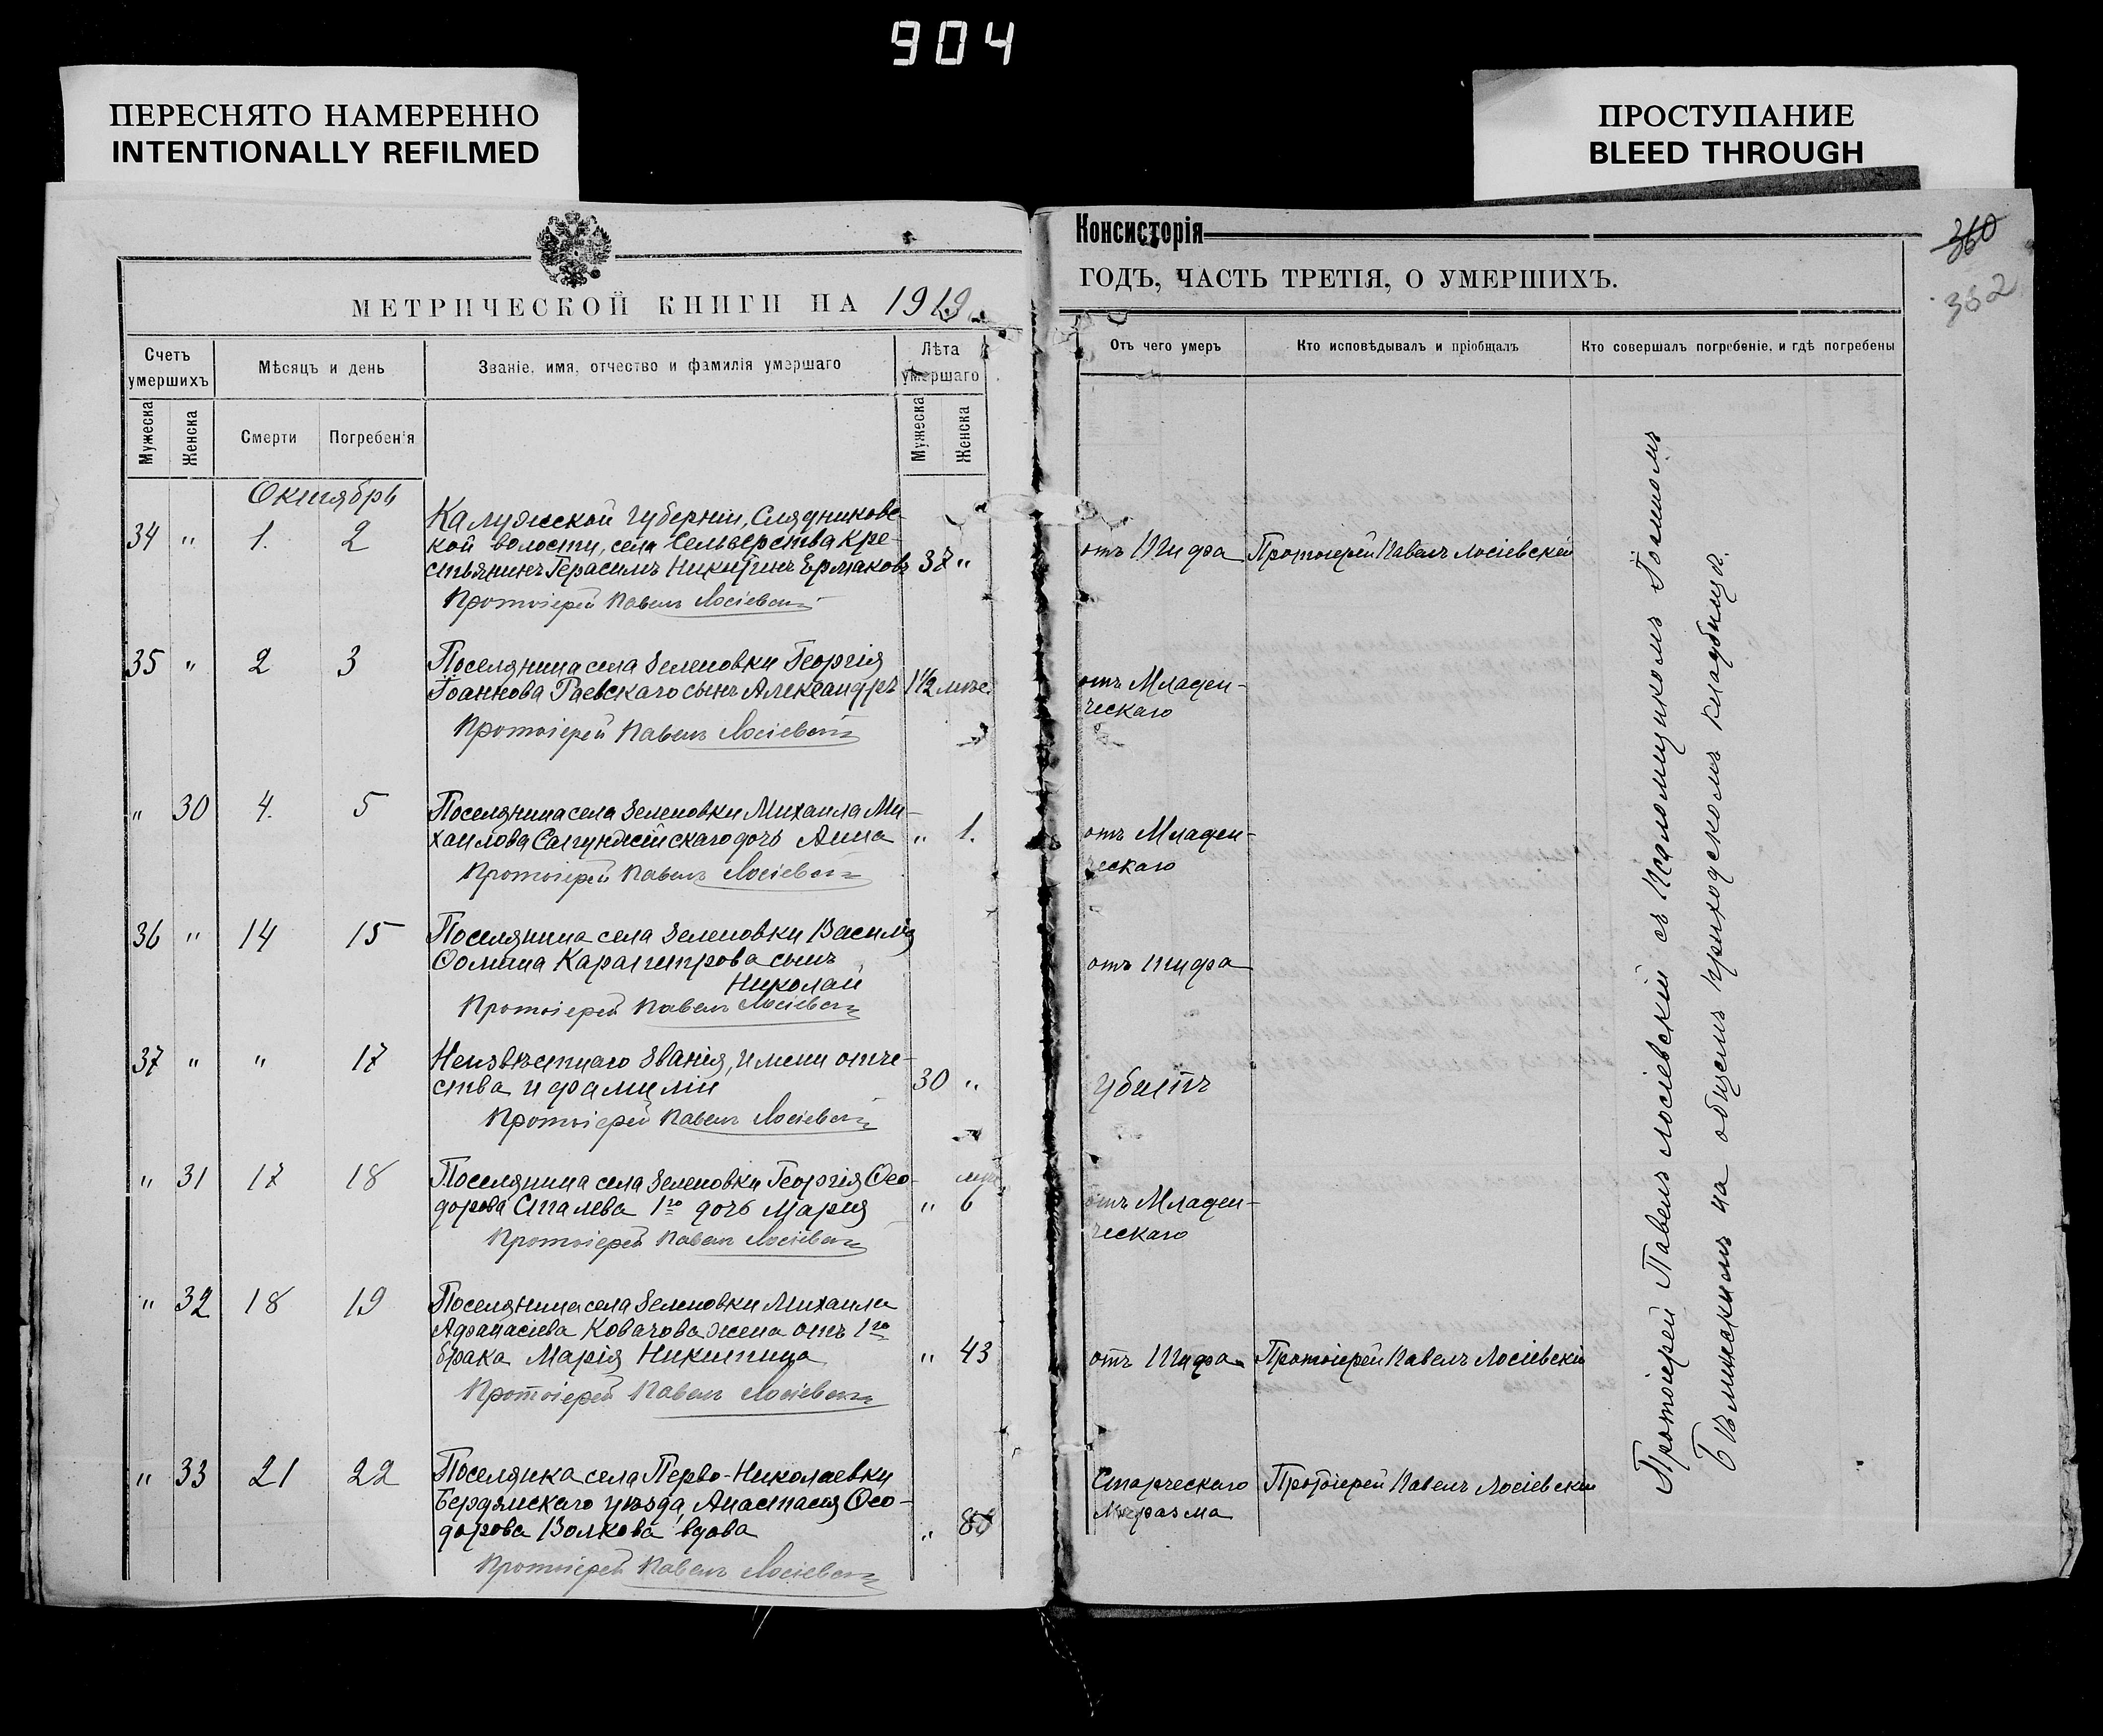 904
ПЕРЕСНЯТО НАМЕРЕННО
INTENTIONALLY REFILMED
ПРОСТУПАНИЕ
BLEED THROUGH
МЕТРИЧЕСКОЙ КНИГИ НА 1919
Консисторія
ГОДЪ, ЧАСТЬ ТРЕТІЯ, О УМЕРШИХЪ.
360
362
Счетъ умершихъ
Мѣсяцъ и день
Званіе, имя, отчество и фамилія умершаго
Лѣта умершаго
Отъ чего умеръ
Кто исповѣдывалъ и пріобщалъ
Кто совершалъ погребеніе, и гдѣ погребены
Мужеска
Женска
Смерти
Погребенія
Мужеска
Женска
Октябрь
34 " 1. 2
Калужской губерніи,
кой волости, села Сельверства кре-
стьянинъ Герасимъ Никитинъ Ермаковъ 37 "
отъ Тифа
Протоіерей Павелъ Лосіевскій
Протоіерей Павелъ Лосіевскій
35 " 2 3
Поселянина села Зеленовки Георгія
Іоаннова Раевскаго сынъ Александръ 1½ мѣс.
отъ Младен-
ческаго
Протоіерей Павелъ Лосіевскій
" 30 4. 5
Поселянина села Зеленовки Михаила Ми-
хаилова дочь Анна " 1.
отъ Младен-
ческаго
Протоіерей Павелъ Лосіевскій
36 " 14 15
Поселянина села Зеленовки Василія
Ѳомина сынъ
Николай
отъ тифа
Протоіерей Павелъ Лосіевскій
37 " " 17
Неизвѣстнаго званія, имени отче-
ства и фамиліи 30 "
убитъ
Протоіерей Павелъ Лосіевскій
" 31 17 18
Поселянина села Зеленовки Георгія Ѳео-
дорова 1го дочь Марія " 6 мѣс.
отъ Младен-
ческаго
Протоіерей Павелъ Лосіевскій
" 32 18 19
Поселянина села Зеленовки Михаила
Афанасіева Ковачова жена отъ 1го
брака Марія Никитина " 43
отъ Тифа
Протоіерей Павелъ Лосіевскій
Протоіерей Павелъ Лосіевскій
" 33 21 22
Поселянка села Перво-Николаевки
Бердянскаго уѣзда, Анастасія Ѳео-
дорова Волкова вдова "
Старческаго
Маразма
Протоіерей Павелъ Лосіевскій
Протоіерей Павелъ Лосіевскій
Протоіерей Павелъ Лосіевскій съ Псаломщикомъ
на общемъ приходскомъ кладбищѣ.